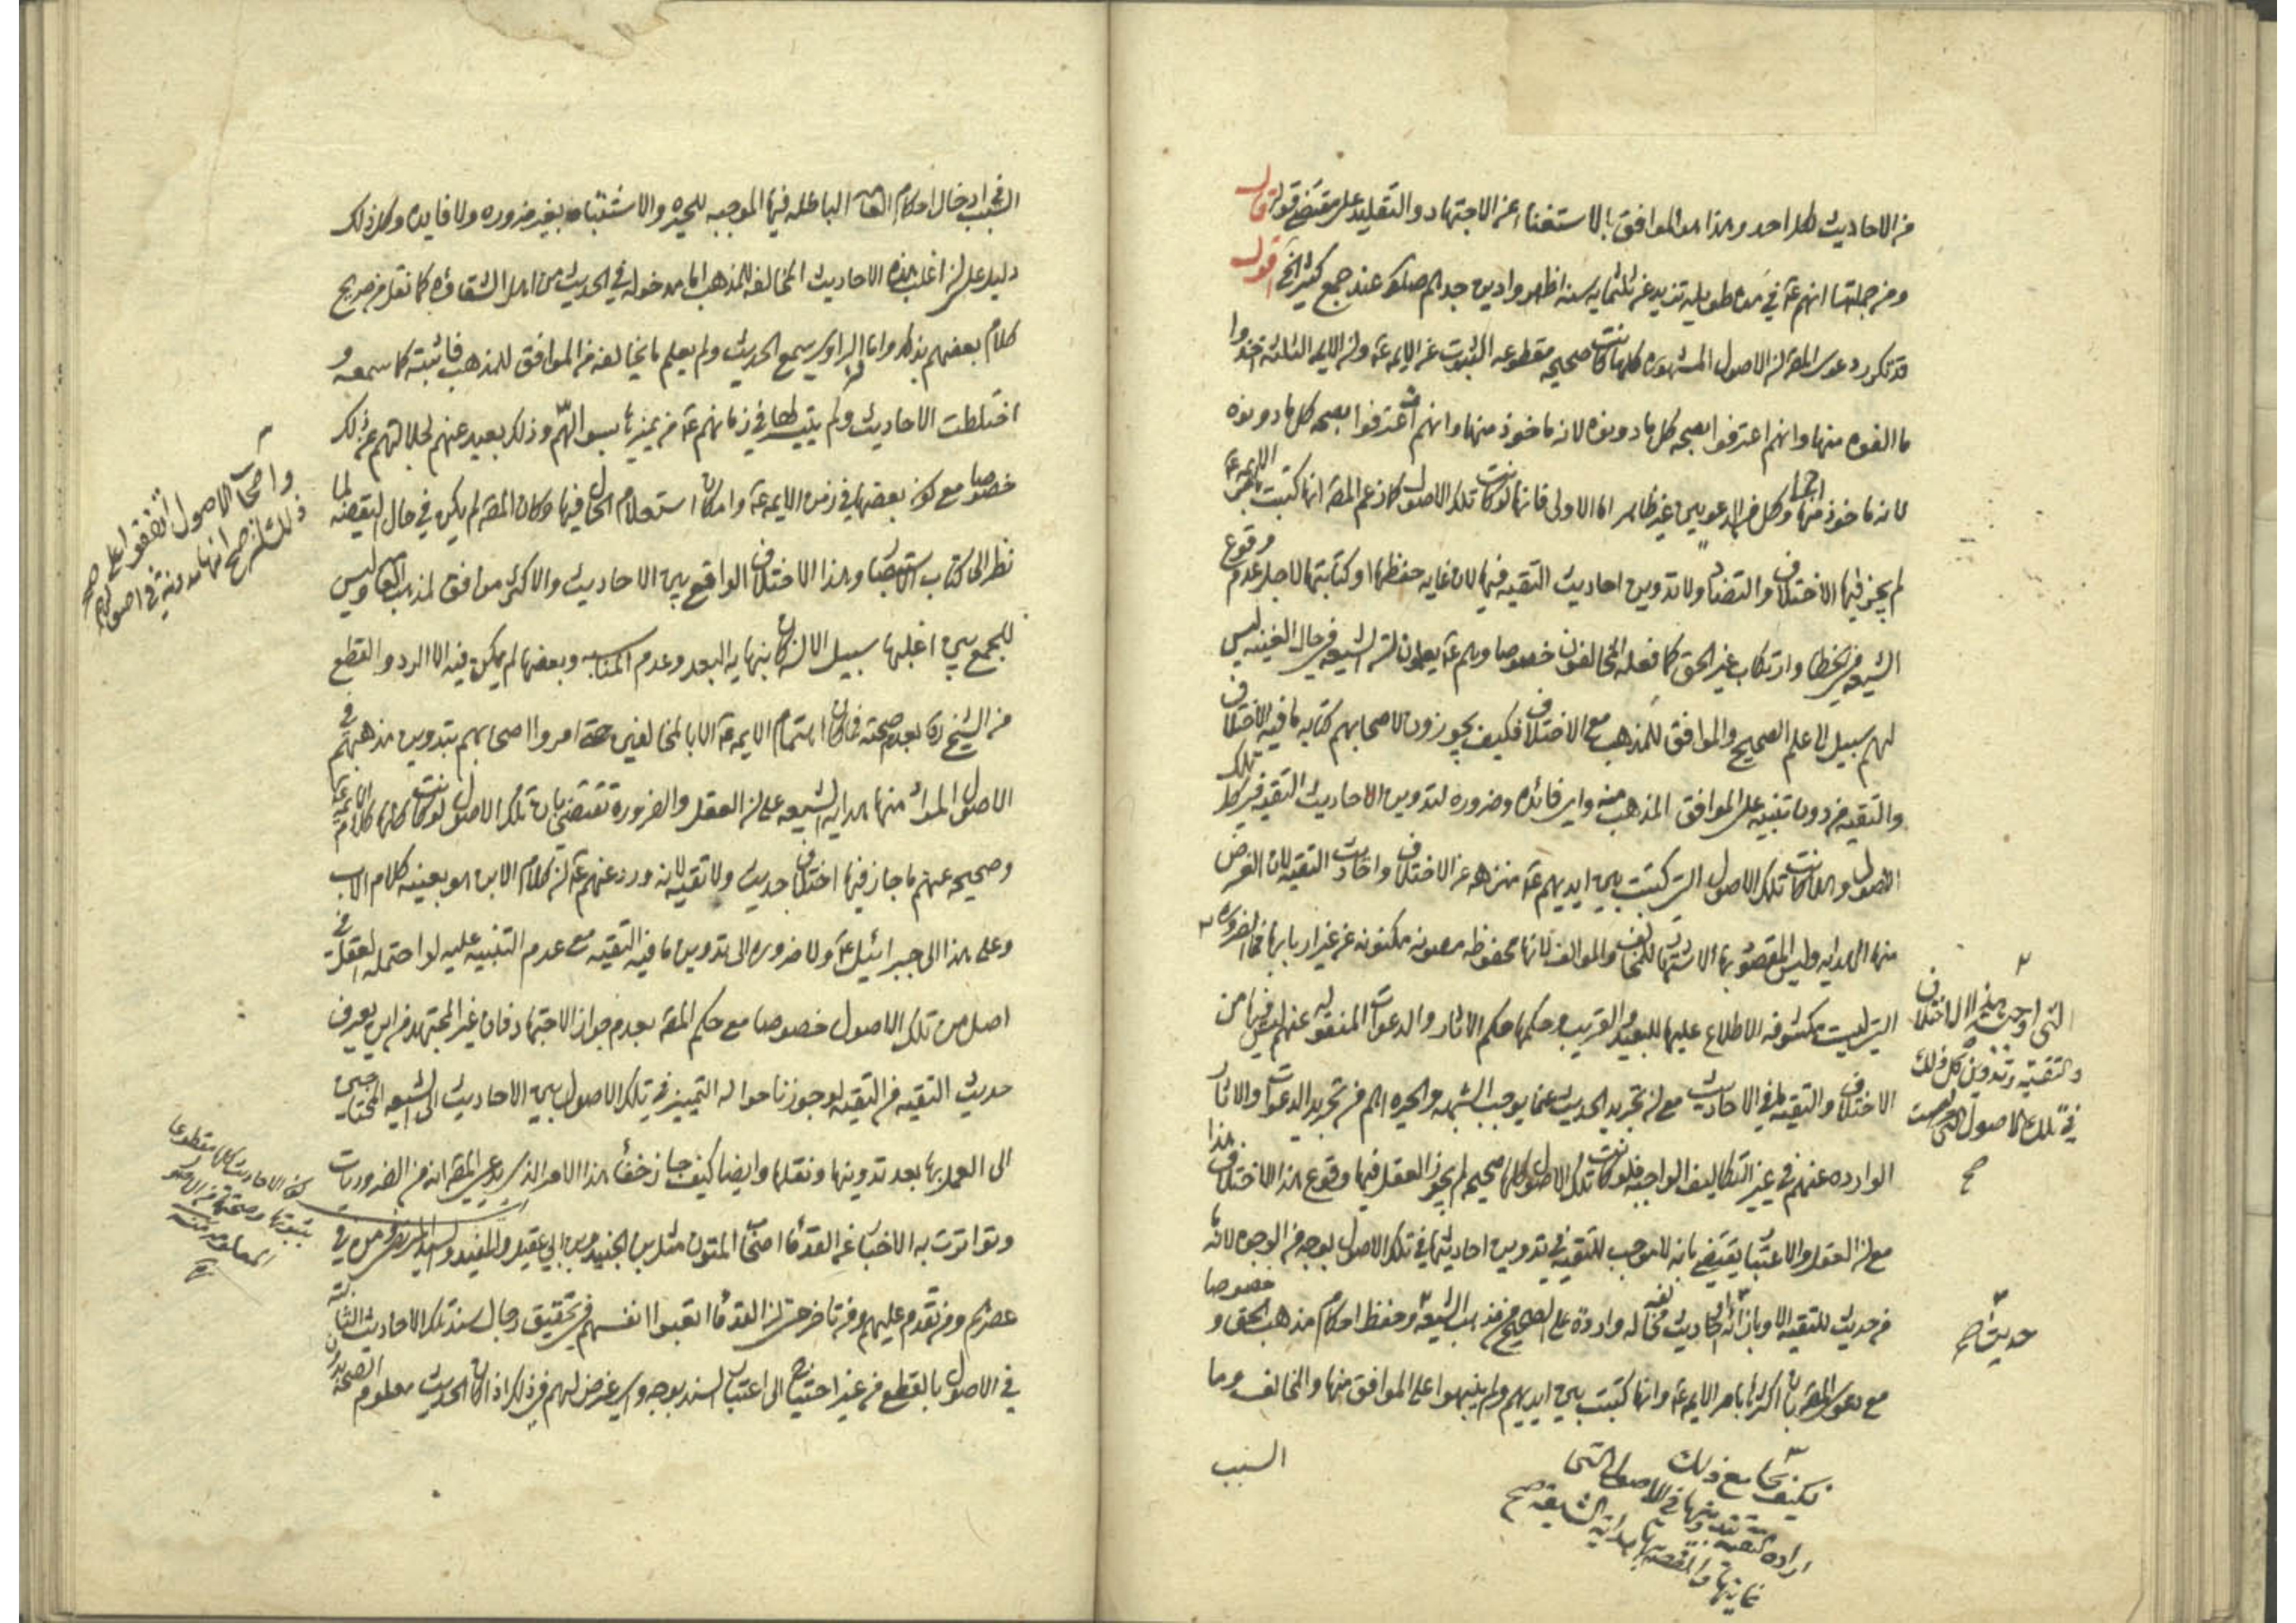 من الاحاديث لكل احد وهذا هو الموافق بالاستغناء عن الاجتهاد والتقليد على مقتضى قوله قال
ومن جملتها انهم عة في مدة طويلة تزيد عن ثلثماية سنة اظهروا دين جدهم صلوة عند جمع كثير الخ اقول
قد تكرر دعوى المصة ان الاصول المشهورة كلها كانت صحيحه مقطوعه الثبوت عن الايمه عة وان الايمه الثلثه اخذوا
ما الفوه منها وانهم اعترفوا بصحة كل ما دونوه لانه ماخوذ منها وانهم اعترفوا بصحة كل ما دونوه
لانه ماخوذ منها وكل من الدعويين غير ظاهر اما الاولى فانها لو كانت تلك الاصول كما زعم المصة انها كتبت بامر الايمه عة
لم يجز فيها الاختلاف والتضاد ولا تدوين احاديث التقيه فيها لان غايه حفظها وكتابتها لاجل عدم وقوع
الشيعه في الخطا وارتكاب غير الحق كما فعله المخالفون خصوصا وهم عة يعلمون ان الشيعه في حال الغيبه ليس
لهم سبيل الى علم الصحيح والموافق للمذهب مع الاختلاف فكيف يجوزون لاصحابهم كتابه ما فيه الاختلاف
والتقيه من دون تنبيه على الموافق المذهب منه واي فائده وضروره لتدوين الاحاديث التقيه في كل تلك
الاصول وانما كانت تلك الاصول التى كتبت بين ايديهم عة منزهه عن الاختلاف واحاديث التقيه لان الغرض
منها الهدايه وليس المقصود بها الاشتهار للمخالف والموالف لانها محفوظه مصونه مكنونه عن غير اربابها فما الضروره
التى ليست مكشوفه الاطلاع عليها للبعيد والقريب وحكمها حكم الاثار والدعوات المنقوله عنهم ليس فيها من
الاختلاف والتقيه ما في الاحاديث مع ان تجريد الحديث عما يوجب الشبهه والحيره اهم من تجريد الدعوات والاثار
الوارده عنهم في غير التكاليف الواجبه فلو كانت تلك الاصول كلها صحيحه لم يجوز العقل فيها وقوع هذا الاختلاف
مع ان العقل والاعتبار يقتضى بانه لا موجب للتقيه في تدوين احاديثها في تلك الاصول بوجه من الوجوه لانه ما
من حديث للتقيه الا وبازائه احاديث مخالفه له وارده على الصحيح من مذهب الشيعه وحفظ احكام مذهب الحق خصوصا و
مع دعوى المصة بان اكثرها بامر الايمه عة وانها كتبت بين ايديهم ولم ينبهوا على الموافق منها والمخالف وما
السبب
التى اوجبت هذه الاختلاف
والتقيه وتدوين كل ذلك
في تلك الاصول التى ليست
صح
حديث صح
فكيف يجامع ذلك
السبب في ادخال احكام العامة الباطله فيها الموجبه للحيره والاشتباه بغير ضروره ولا فايده وكل ذلك
دليل على ان اغلب هذه الاحاديث المخالفه للمذهب اما مدخوله في الحديث من اهل الشقاوه كما نقل من صريح
كلام بعضهم بذلك واما الراوى سمع الحديث ولم يعلم ما يخالفه من الموافق للمذهب فاثبته كما سمعه و
اختلطت الاحاديث ولم يتيسر لها في زمانهم عة من يميزها بسؤالهم وذلك بعيد عنهم لجلالتهم عن ذلك
خصوصا مع كون بعضها في زمن الايمه عة وامكان استعلام الحال فيها وكان المصة لم يكن في حال لتقضه لما
نظر الى كتاب الاستبصار وهذا الاختلاف الواقع بين الاحاديث والاكثر موافق لمذهب العامه وليس
للجمع بين اغلبها سبيل الا ان كان بنهايه البعد وعدم المناسبه وبعضها لم يمكن فيه الا الرد والقطع
من الشيخ ره بعدم صحته فما كان اهتمام الايمه عة الا بالمخالفين حتى امروا اصحابهم بتدوين مذهبهم في
الاصول المراد منها هدايه الشيعه على ان العقل والضرورة تقتضى بان تلك الاصول لو كانت كلها كلام الايمه عة
وصحيحه عنهم ما جاز فيها اختلاف حديث ولا تقيه لانه ورد عنهم عة ان كلام الابن هو بعينه كلام الاب
وعلى هذا الى جبرائيل عة ولا ضروره الى تدوين ما فيه التقيه مع عدم التنبيه عليه لو احتمله العقل في
اصل من تلك الاصول خصوصا مع حكم المصة بعدم جواز الاجتهاد فان غير المجتهد من اين يعرف
حديث التقيه من التقيه لو جوزنا حواله التمييز في تلك الاصول بين الاحاديث الى الشيعه المحتاجين
الى العمل بها بعد تدوينها ونقلها وايضا كيف جاز خفاء هذا الامر الذى يدعى المصة انه من الضروريات
وتواترت به الاخبار عن القدماء اصحاب المتون مثل بن الجنيد وبن ابي عقيل والمفيد والسيد المرتضى ومن في
عصرهم ومن تقدم عليهم ومن تاخر حتى ان القدماء اتعبوا انفسهم في تحقيق رجال سند تلك الاحاديث الثابته
في الاصول بالقطع من غير احتياج الى اعتبار السند بوجه واى غرض لهم في ذلك اذا كان الحديث معلوم الصحه بدون
واصحاب الاصول اتفقوا على صحة
كون الاحاديث كلها مقطوعا
بثبوتها وصحتها
صح